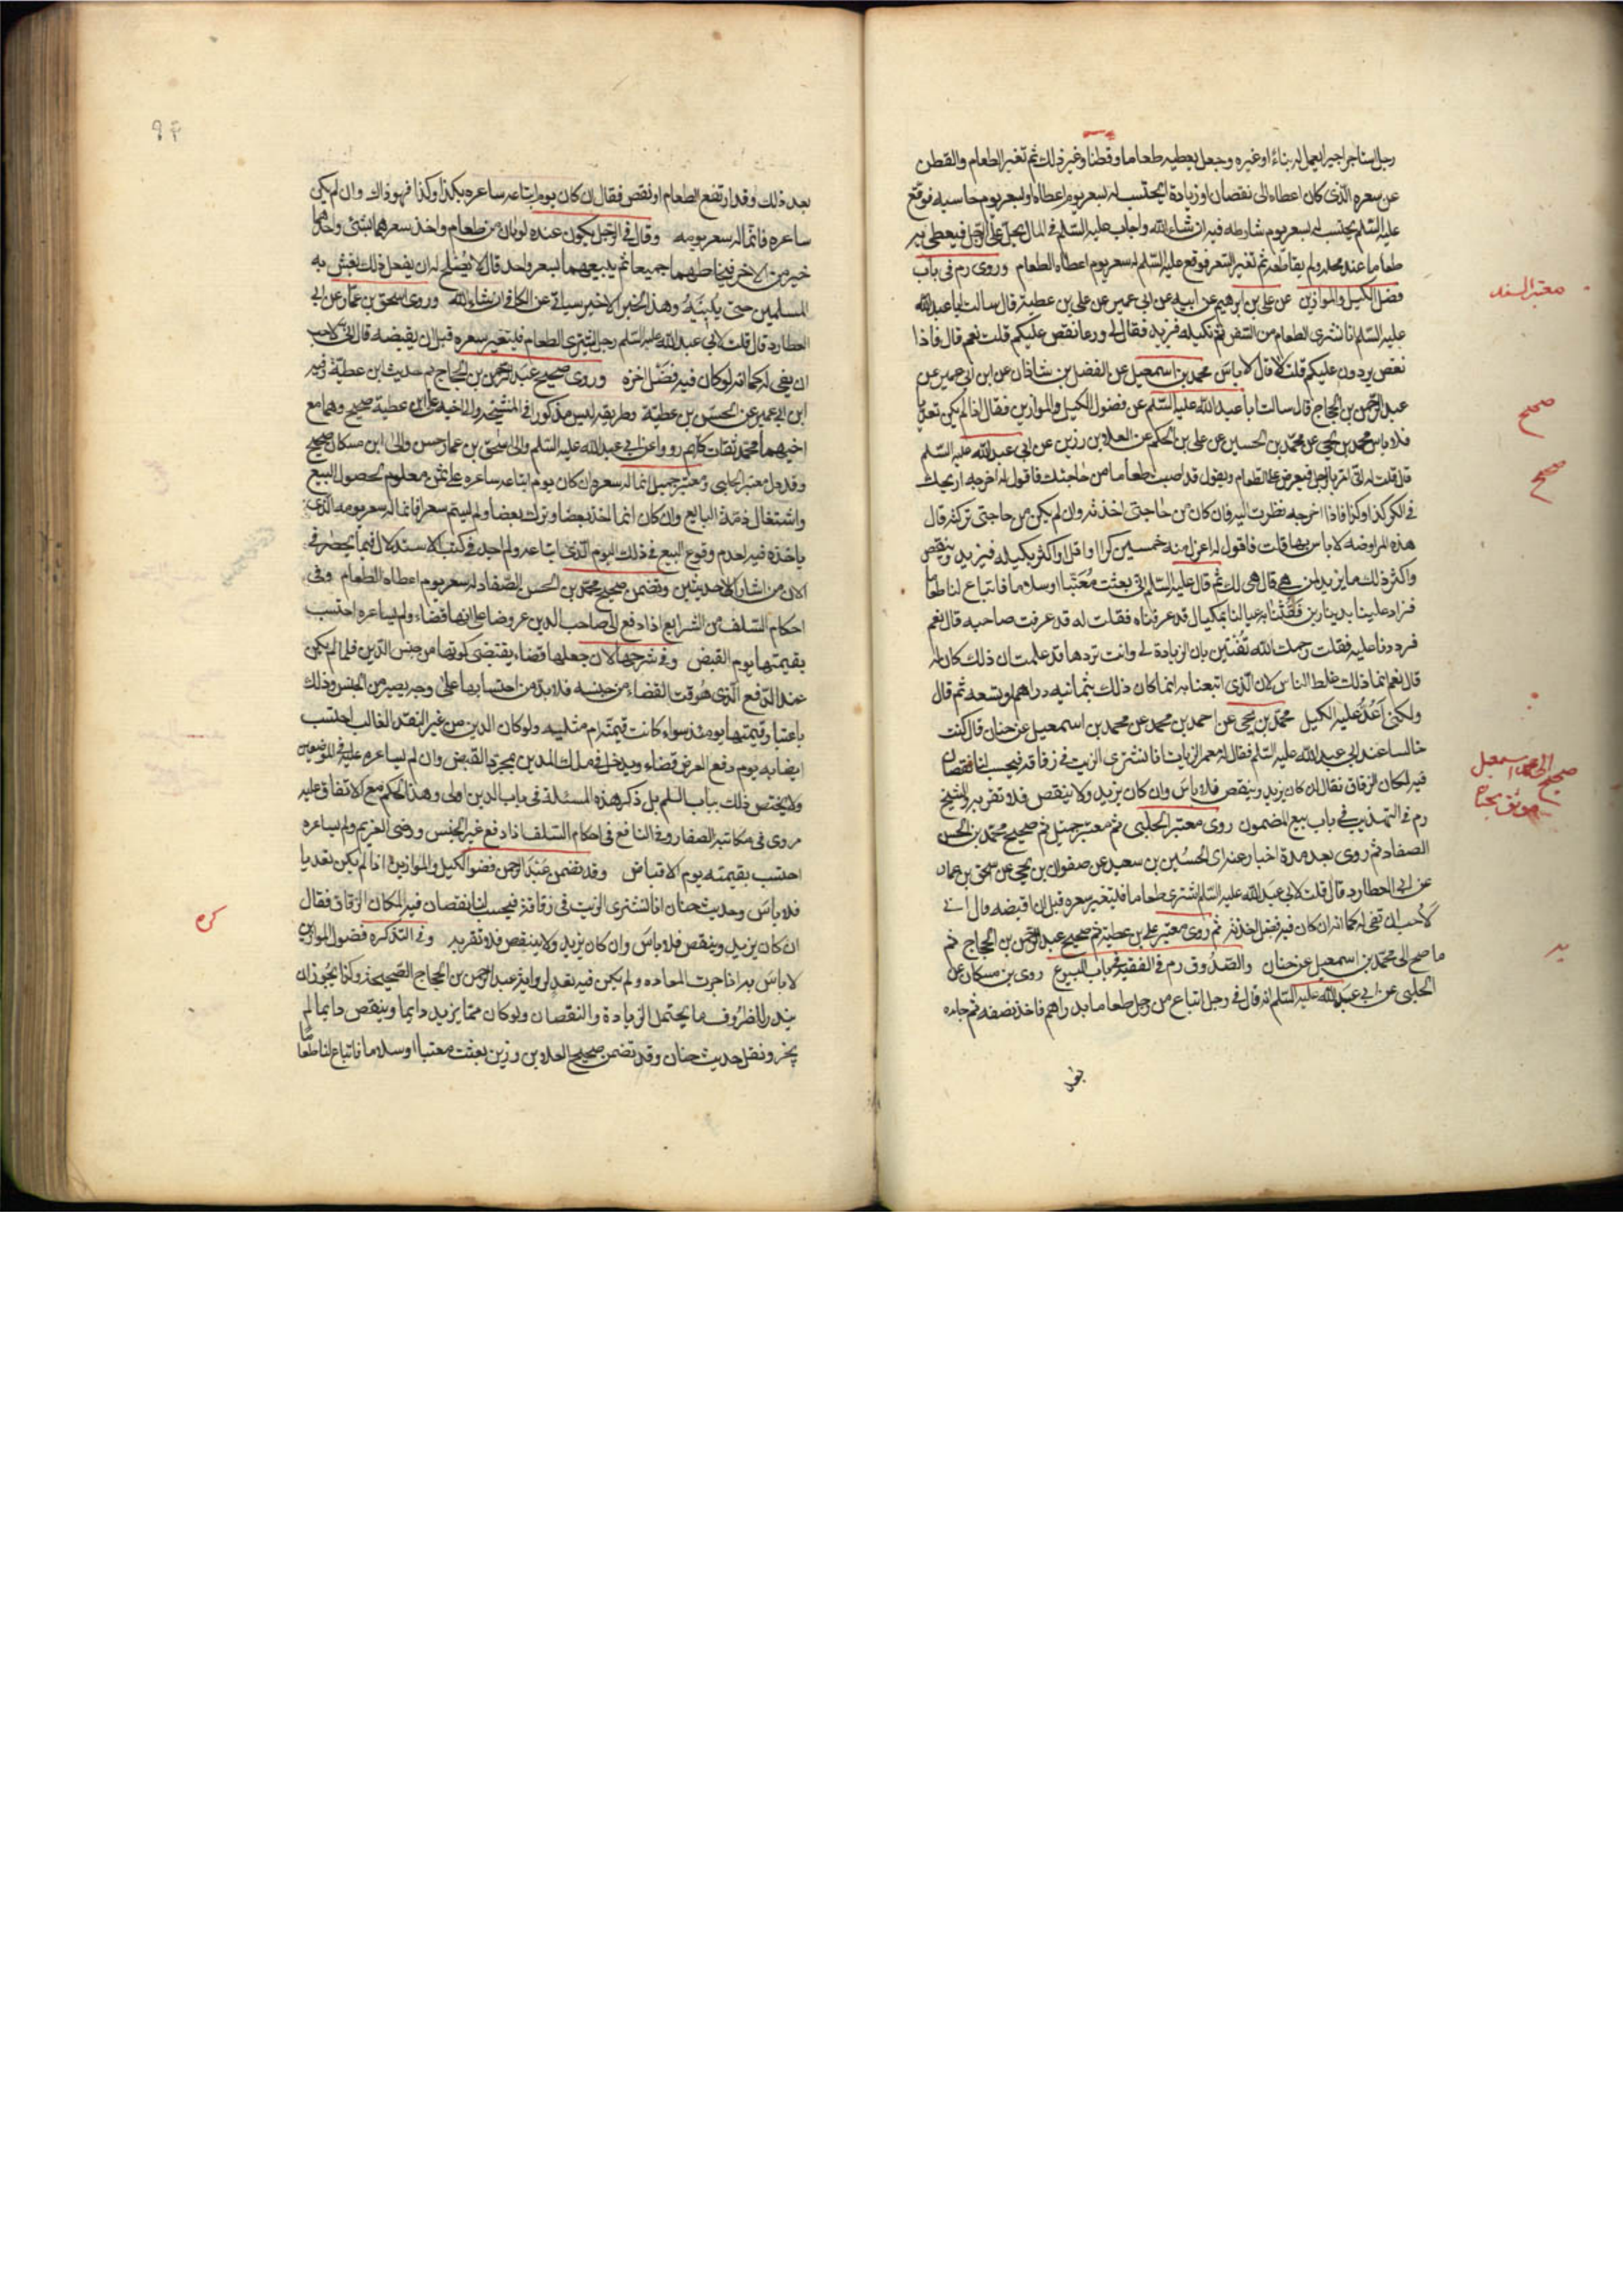 رجل استاجر اجيرا يعمل له بناءً او غيره وجعل يعطيه طعاما وقطنا وغير ذلك ثم تغير الطعام والقطن
عن سعره الذى كان اعطاه الى نقصان او زيادة ايحتسب له بسعر يوم اعطاه او بسعر يوم حاسبه فوقع
عليه السلم يحتسب له بسعر يوم شارطه فيه ان شاء الله واجاب عليه السلم فى المال يحل على الرجل فيعطى به
طعاما عند محله ولم يقاطعه ثم تغير السعر فوقع عليه السلم له سعر يوم اعطاه الطعام وروى رم فى باب
فضل الكيل والموازين عن على بن ابرهيم عن ابيه عن ابى عمير عن على بن عطية قال سالت ابا عبد الله
عليه السلم انا نشترى الطعام من السفن ثم نكيله فيزيد فقال لى وربما نقص عليكم قلت نعم قال فاذا
نقص يردون عليكم قلت لا قال لا باس محمد بن اسمعيل عن الفضل بن شاذان عن ابن ابى عمير عن
عبد الرحمن بن الحجاج قال سالت ابا عبد الله عليه السلم عن فضول الكيل والموازين فقال اذا لم يكن تعديا
فلا باس محمد بن يحيى عن محمد بن الحسين عن على بن الحكم عن العلاء بن رزين عن ابى عبد الله عليه السلم
قال قلت له انى امر بالرجل فيعرض على الطعام ويقول قد اصبت طعاما من حاجتك فاقول له اخرجه اربحك
فى الكر كذا وكذا فاذا اخرجه نظرت اليه فان كان من حاجتى اخذته وان لم يكن من حاجتى تركته قال
هذه المراوضة لا باس بها قلت فاقول له اعزل منه خمسين كرا او اقل او اكثر بكيله فيزيد وينقص
واكثر ذلك ما يزيد لمن هى قال هى لك ثم قال عليه السلم انى بعثت معتبا او سلاما فابتاع لنا طعاما
فزاد علينا بدينارين فقتنا به عيالنا بمكيال قد عرفناه فقلت له قد عرفت صاحبه قال نعم
فرددنا عليه فقلت رحمك الله تفتين بان الزيادة لى وانت تردها قد علمت ان ذلك كان له
قال نعم انما ذلك غلط الناس لان الذى ابتعنا به انما كان ذلك بثمانيه دراهم او تسعه ثم قال
ولكنى اعد عليه الكيل محمد بن يحيى عن احمد بن محمد عن محمد بن اسمعيل عن حنان قال كنت
جالسا عند ابى عبد الله عليه السلم فقال له معمر الزيات انا نشترى الزيت فى زقاقه فيحسب لنا نقصان
فيه لمكان الزقاق فقال ان كان يزيد وينقص فلا باس وان كان يزيد ولا ينقص فلا تقربه والشيخ
رم فى التهذيب فى باب بيع المضمون روى معتبر الحلبى ثم معتبر جميل ثم صحيح محمد بن الحسن
الصفار ثم روى بعد مدة اخبار عنه اى الحسين بن سعيد عن صفوان بن يحيى عن اسحق بن عمار
عن ابى العطارد قال قلت لابى عبد الله عليه السلم اشترى طعاما فيتغير سعره قبل ان اقبضه قال انى
لاحب ان تفى له كما انه ان كان فيه فضل اخذته ثم روى معتبر على بن عطية ثم صحيح عبد الرحمن بن الحجاج ثم
ما صح الى محمد بن اسمعيل عن حنان والصدوق رم فى الفقيه فى باب البيوع روى بن مسكان عن
الحلبى عن ابى عبد الله عليه السلم انه قال فى رجل ابتاع من رجل طعاما بدراهم فاخذ نصفه ثم جاءه
بعد
معتبر السند
صحيح
صحيح
٩٣
بعد ذلك وقد ارتفع الطعام او نقص فقال ان كان يوم ابتاعه ساعره بكذا وكذا فهو ذاك وان لم يكن
ساعره فانما له سعر يومه وقال فى الرجل يكون عنده لونان من طعام واحد سعرهما شتى واحدهما
خير من الاخر فيخلطهما جميعا ثم يبيعهما بسعر واحد قال لا يصلح له ان يفعل ذلك يغش به
المسلمين حتى يبينه وهذا الخبر الاخير سياتى عن الكافى ان شاء الله وروى اسحق بن عمار عن ابى
العطارد قال قلت لابى عبد الله عليه السلم رجل اشترى الطعام فيتغير سعره قبل ان يقبضه قال انى لاحب
ان يفى له كما انه لو كان فيه فضل اخذه وروى صحيح عبد الرحمن بن الحجاج ثم حديث ابن عطية وفيه
ابن ابى عمير عن الحسن بن عطية وطريقه ليس مذكورا فى المشيخة والى اخيه على بن عطية صحيح وهما مع
اخيهما محمد ثقات كلهم رووا عن ابى عبد الله عليه السلم والى اسحق بن عمار حسن والى ابن مسكان صحيح
وقد دل معتبر الحلبى ومعتبر جميل انما له سعره ان كان يوم ابتاعه ساعره على ثمن معلوم لحصول البيع
واشتغال ذمة البايع وان كان انما اخذ بعضا وترك بعضا ولم يسم سعرا فانما له سعر يومه الذى
ياخذه فيه لعدم وقوع البيع فى ذلك اليوم الذى ابتاعه ولم اجد فى كتب الاستدلال فيما يحضرنى
الان من اشار الى الحديثين وتضمن صحيح محمد بن الحسن الصفار له سعر يوم اعطاه الطعام وفى
احكام السلف من الشرايع اذا دفع الى صاحب الدين عروضا على انها قضاء ولم يساعره احتسب
بقيمتها يوم القبض وفى شرحها لان جعلها قضاء يقتضى كونها من جنس الدين فلما لم يكن
عند الدفع الذى هو وقت القضاء من جنسه فلا بد من احتسابها على وجه يصير من الجنس وذلك
باعتبار قيمتها يومئذ سواء كانت قيمته ام مثليه ولو كان الدين من غير النقد الغالب احتسب
ايضا به يوم دفع العرض قضاء ويدخل فى ملك المدين بمجرد القبض وان لم يساعره عليه فى الموضعين
ولا يختص ذلك بباب السلم بل ذكر هذه المسئلة فى باب الدين اولى وهذا الحكم مع الاتفاق عليه
مروى فى مكاتبة الصفار وفى النافع فى احكام السلف اذا دفع غير الجنس ورضى الغريم ولم يساعره
احتسب بقيمته يوم الاقباض وقد تضمن عبد الرحمن فضول الكيل والموازين اذا لم يكن تعديا
فلا باس وحديث حنان انا نشترى الزيت فى زقاقه فيحسب لنا نقصان فيه لمكان الزقاق فقال
ان كان يزيد وينقص فلا باس وان كان يزيد ولا ينقص فلا تقربه وفى التذكره فضول الموازين
لا باس بها اذا جرت العاده ولم يكن فيه تعد لرواية عبد الرحمن بن الحجاج الصحيحه وكذا يجوز ان
يندر للظروف ما يحتمل الزيادة والنقصان ولو كان مما يزيد دايما وينقص دايما لم
يجز ونقل حديث حنان وقد تضمن صحيح العلاء بن رزين بعثت معتبا او سلاما فابتاع لنا طعاما